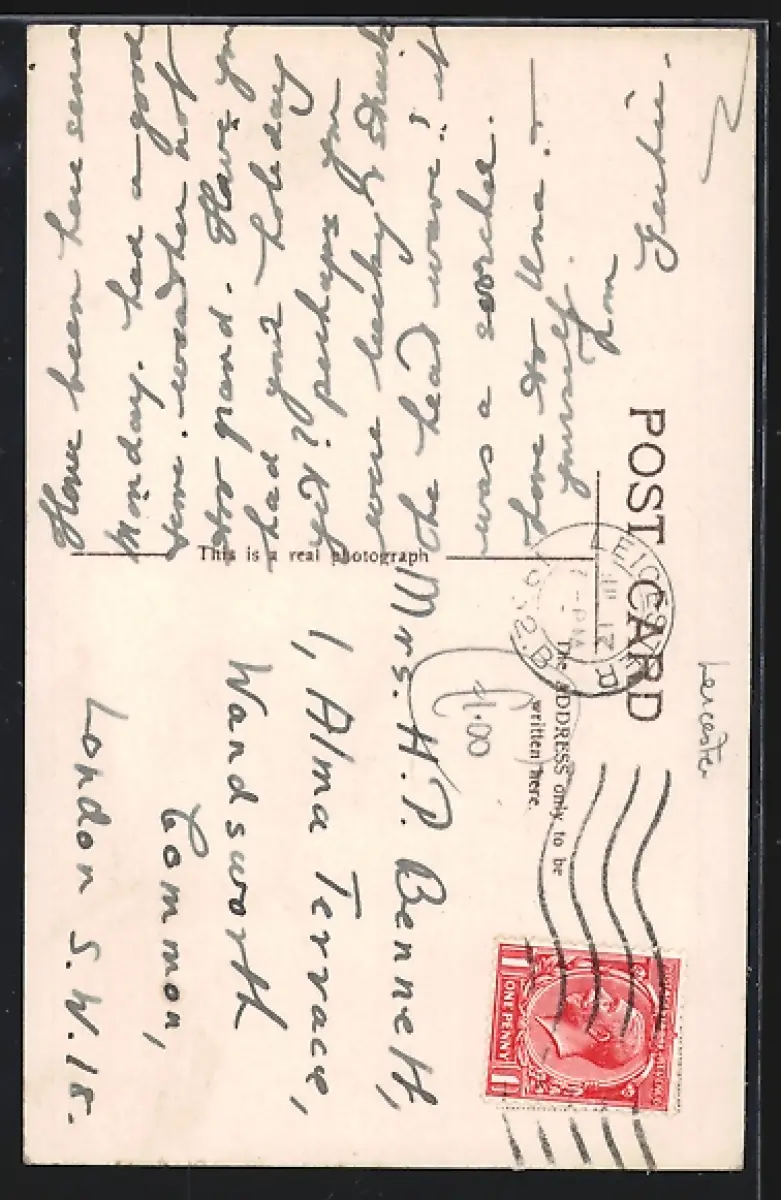 POST CARD
Leicester
This is a real photograph
The ADDRESS only to be
written here.
Have been here since
Monday. had a good
time. weather not
too grand. Have you
had your holiday
yet? perhaps you
were lucky & struck
the heat wave!! it
was a scorcher.
Love to Una. &
yourself.
from
Gertie.
Mrs. H. P. Bennett,
1, Alma Terrace,
Wandsworth
Common,
London S.W.18.
£1.00
LEICESTER
ONE PENNY